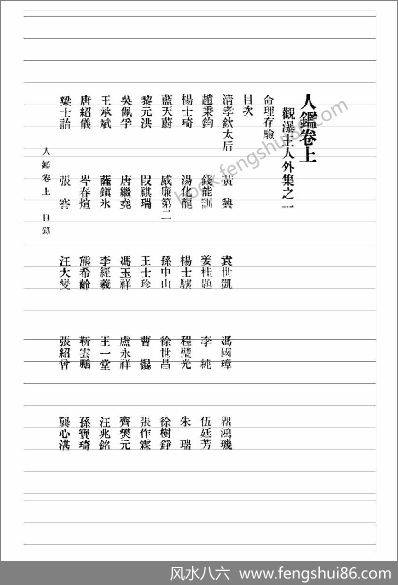 人鑑卷上
觀瀑主人外集之一
命理存驗
目次
清孝欽太后　黃興　袁世凱　馮國璋　瞿鴻璣
趙秉鈞　錢能訓　姜桂題　李純　伍廷芳
楊士琦　湯化龍　楊士驤　程璧光　朱瑞
藍天蔚　威廉第二　孫中山　徐世昌　徐樹錚
黎元洪　段祺瑞　王士珍　曹錕　張作霖
吳佩孚　唐繼堯　馮玉祥　盧永祥　齊燮元
王承斌　薩鎮氷　李經羲　王一堂　汪兆銘
唐紹儀　岑春煊　熊希齡　靳雲鵬　孫寶琦
梁士詒　張謇　汪大燮　張紹曾　龔心湛
人鑑卷上　目錄
www.fengshui86.com
风水八六 www.fengshui86.com